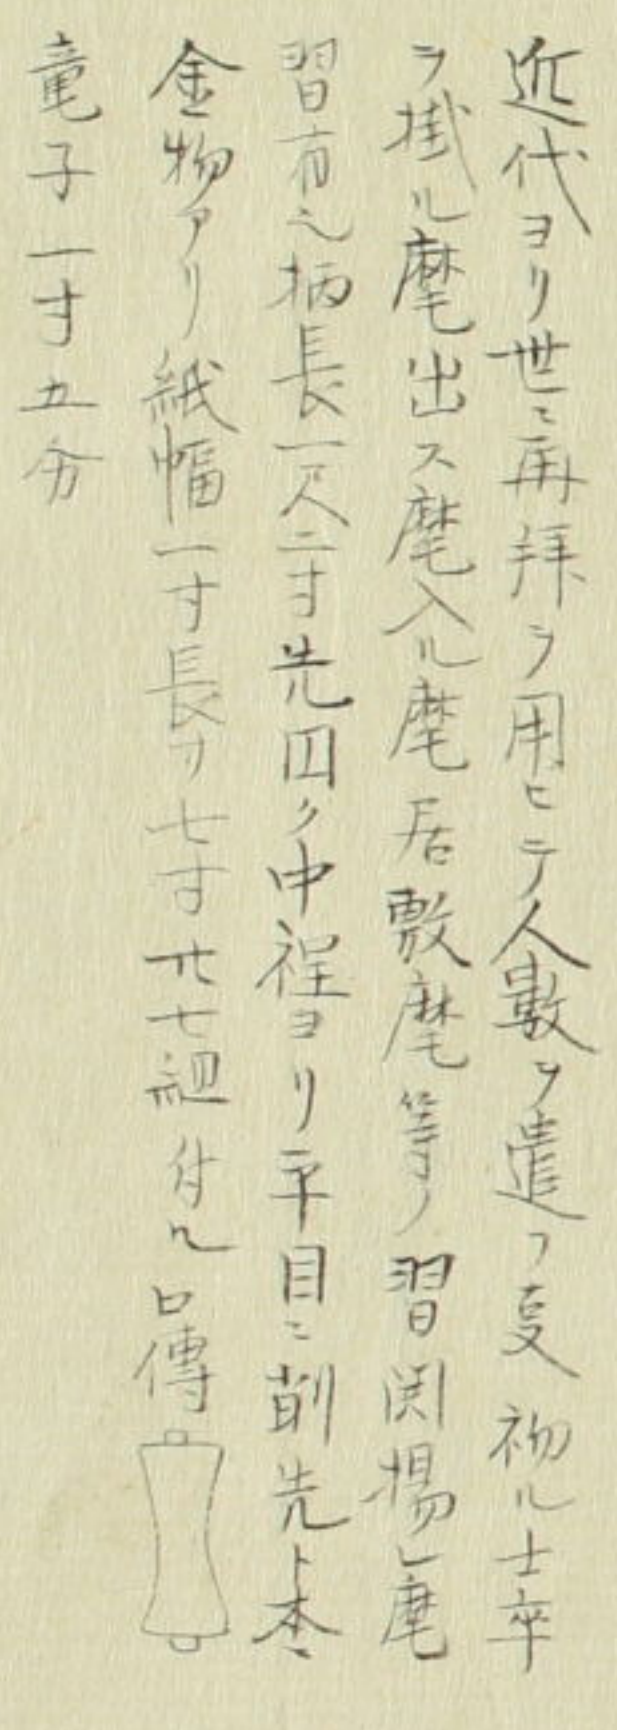 近代ヨリ世ニ再拝ヲ用ヒテ人數ヲ遣フ叓初ル士卒
ヲ掛ル麾出ス麾入ル麾居敷麾等ノ習閧揚レ麾
習有之柄長一尺二寸先四ク中程ヨリ平目ニ削先ト本ニ
金物アリ紙幅一寸長サ七寸廿七紐付ル口傳
竜子一寸五分